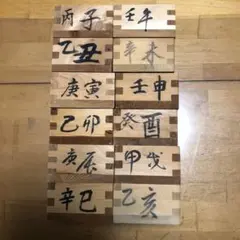 丙子
乙丑
庚寅
乙卯
庚辰
辛巳
壬午
辛未
壬申
癸酉
甲戌
乙亥